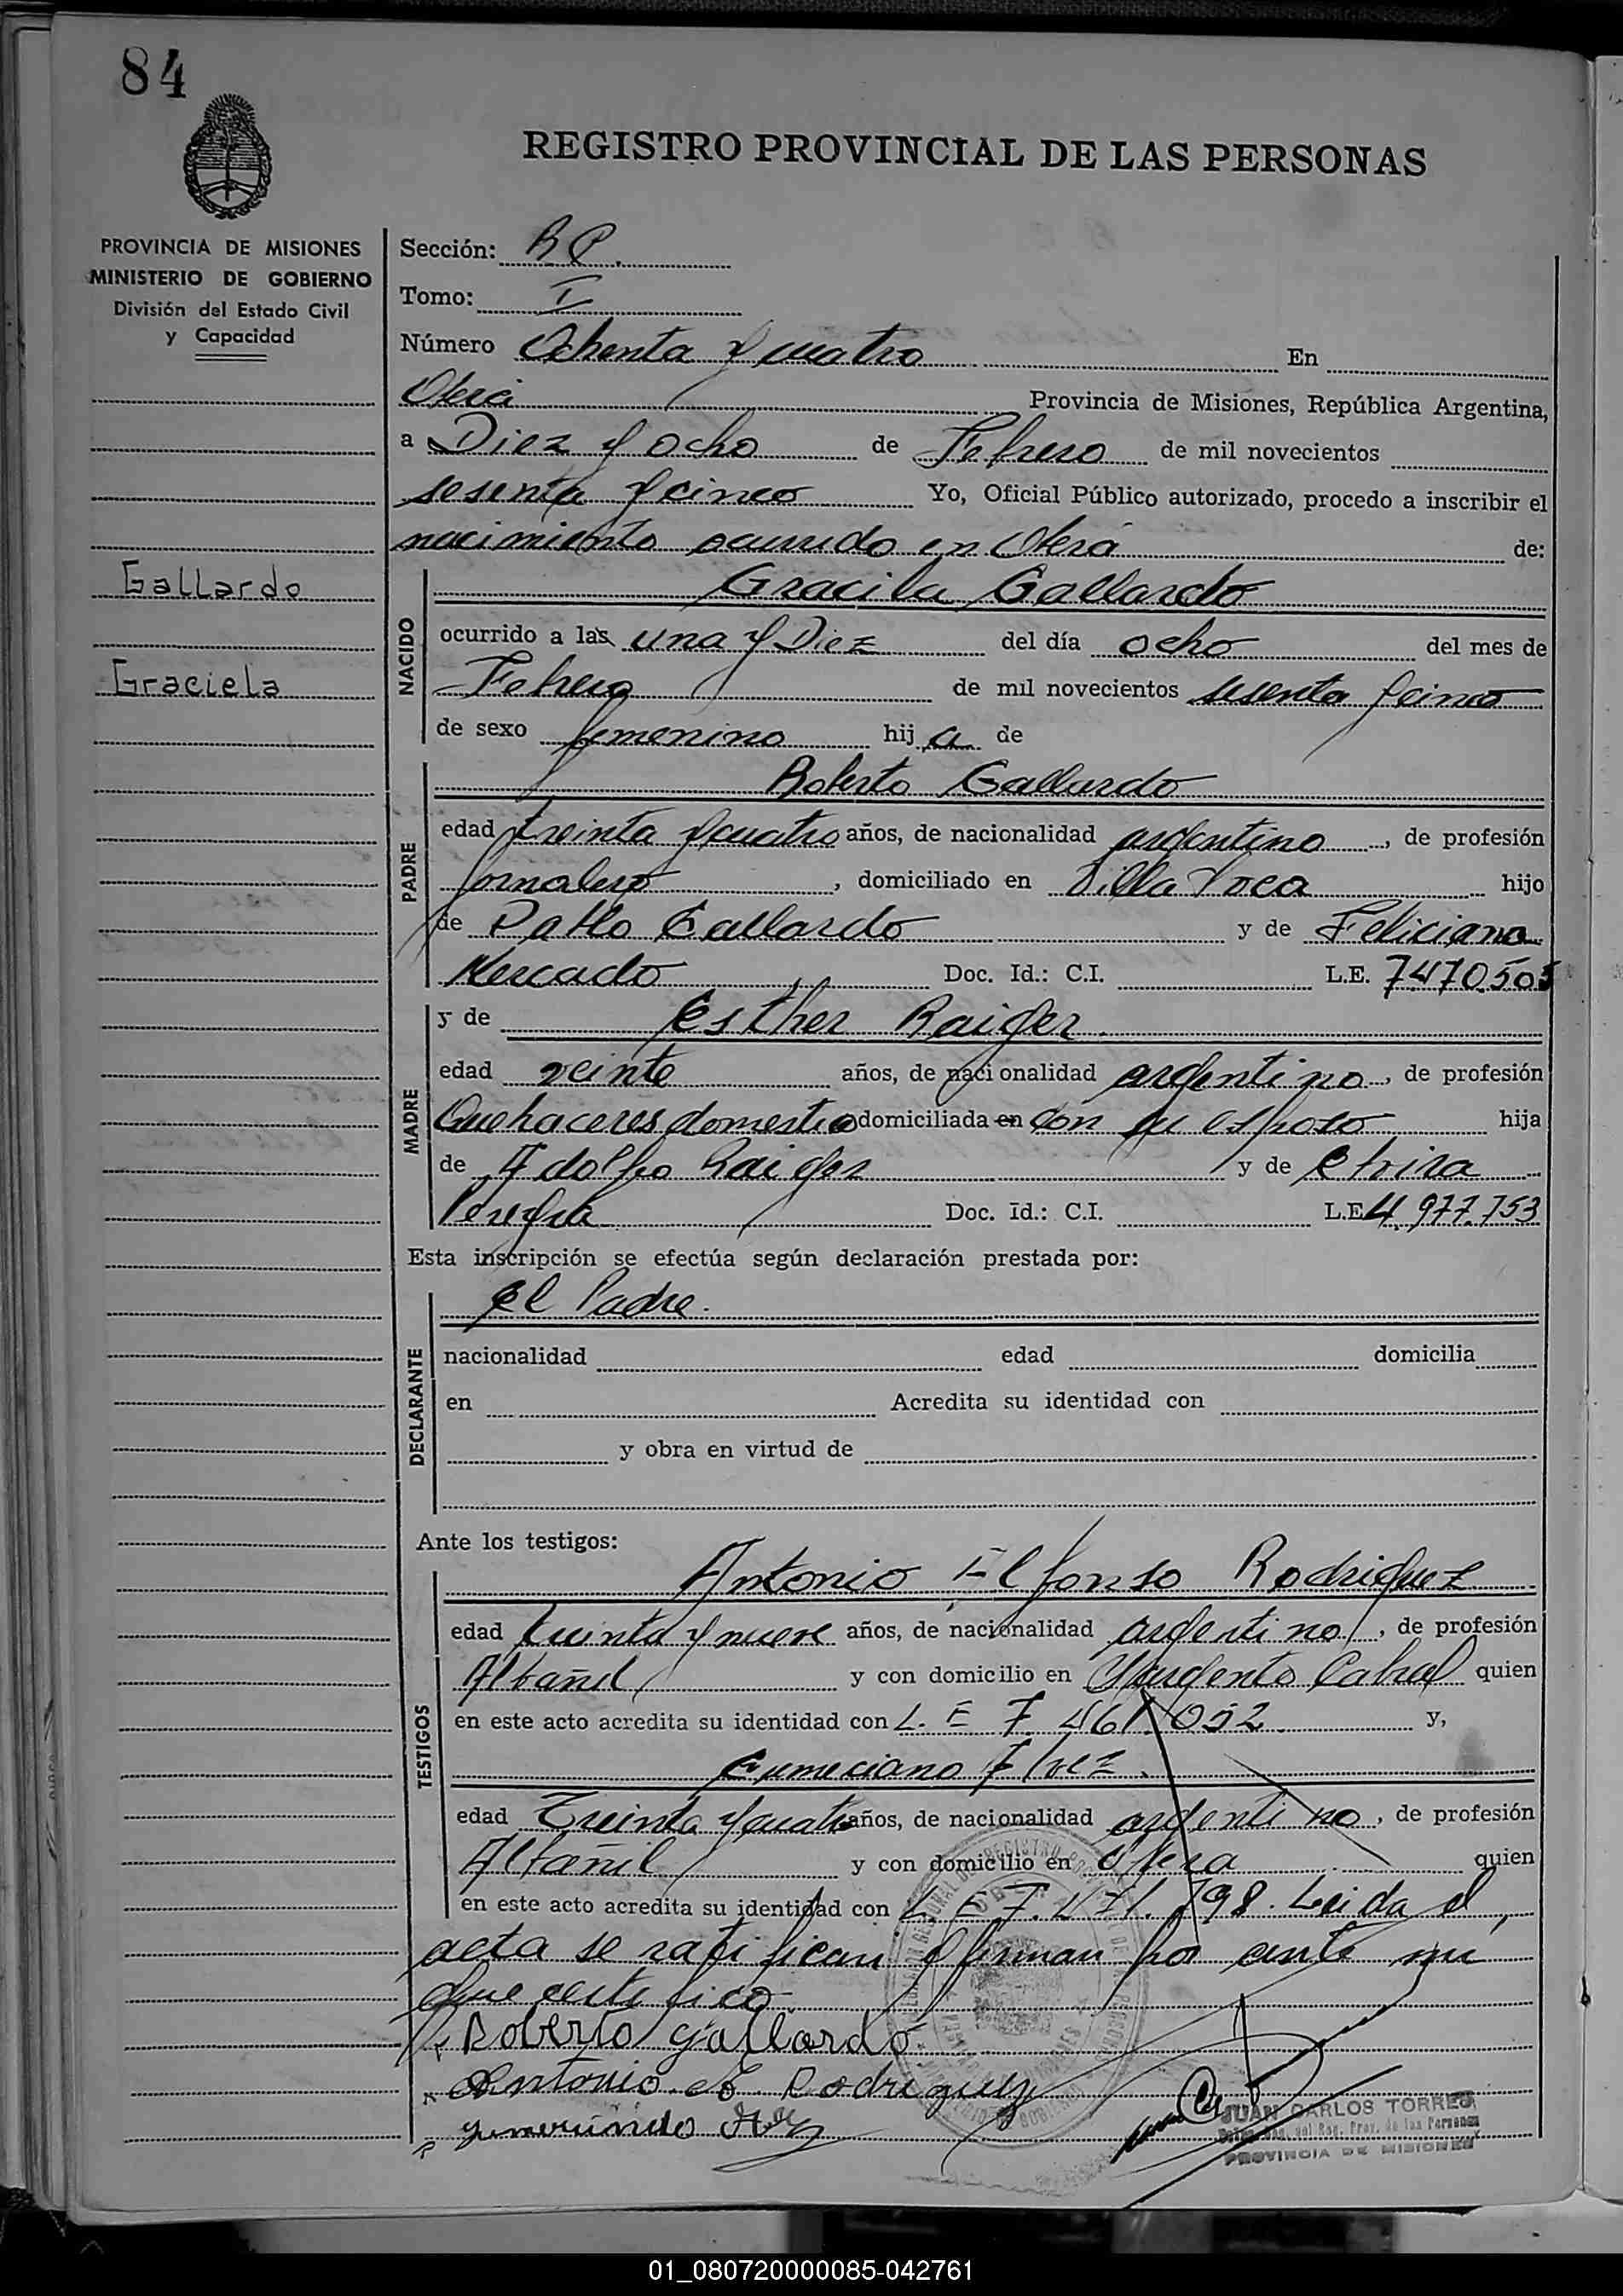 84
REGISTRO PROVINCIAL DE LAS PERSONAS
PROVINCIA DE MISIONES
MINISTERIO DE GOBIERNO
División del Estado Civil
y Capacidad
Gallardo
Graciela
Sección: R P.
Tomo: I
Número Ochenta y cuatro En
Oberá Provincia de Misiones, República Argentina,
a Diez y ocho de Febrero de mil novecientos
sesenta y cinco Yo, Oficial Público autorizado, procedo a inscribir el
nacimiento ocurrido en Oberá de:
NACIDO
Graciela Gallardo
ocurrido a las una y Diez del día ocho del mes de
Febrero de mil novecientos sesenta y cinco
de sexo femenino hij a de
PADRE
Roberto Gallardo
edad treinta y cuatro años, de nacionalidad argentino, de profesión
Jornalero, domiciliado en Villa hijo
de Pablo Gallardo y de Feliciana
Mercado Doc. Id.: C.I. L.E. 7470.505
MADRE
y de Esther Raiger.
edad veinte años, de nacionalidad argentino, de profesión
Quehaceres domestico domiciliada en con su esposo hija
de Adolfo Raiger y de
Doc. Id.: C.I. L.E 4.977.753
Esta inscripción se efectúa según declaración prestada por:
DECLARANTE
El Padre.
nacionalidad edad domicilia
en Acredita su identidad con
y obra en virtud de
Ante los testigos:
TESTIGOS
Antonio Elfonso Rodriguez
edad treinta y nueve años, de nacionalidad argentino, de profesión
Albañil y con domicilio en Sargento Cabral quien
en este acto acredita su identidad con L. E 7. 461.052 y,
edad Treinta y cuatro años, de nacionalidad argentino, de profesión
Albañil y con domicilio en Obera quien
en este acto acredita su identidad con L. E 7. 471. 798. Leida el
acta se ratifican y firman por ante mi
que certifico.
Roberto gallardo
Antonio. E. Rodriguez
JUAN CARLOS TORRES
PROVINCIA DE MISIONES
01_080720000085-042761